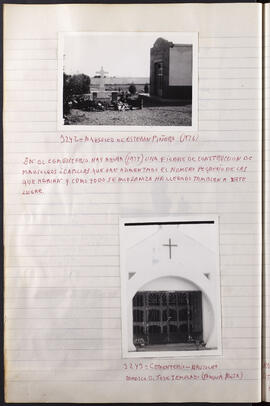 3242 - MAUSOLEO DE ESTEBAN PIÑERO (1976)
EN EL CEMENTERIO HAY AHORA (1977) UNA FIEBRE DE CONSTRUCCION DE
MAUSOLEOS O CAPILLAS QUE HAN AUMENTADO EL NUMERO PEQUEÑO DE LAS
QUE HABIAN Y COMO TODO SE MODERNIZA HA LLEGADO TAMBIEN A ESTE
LUGAR
3243 - CEMENTERIO - MAUSOLEO
D. JOSE